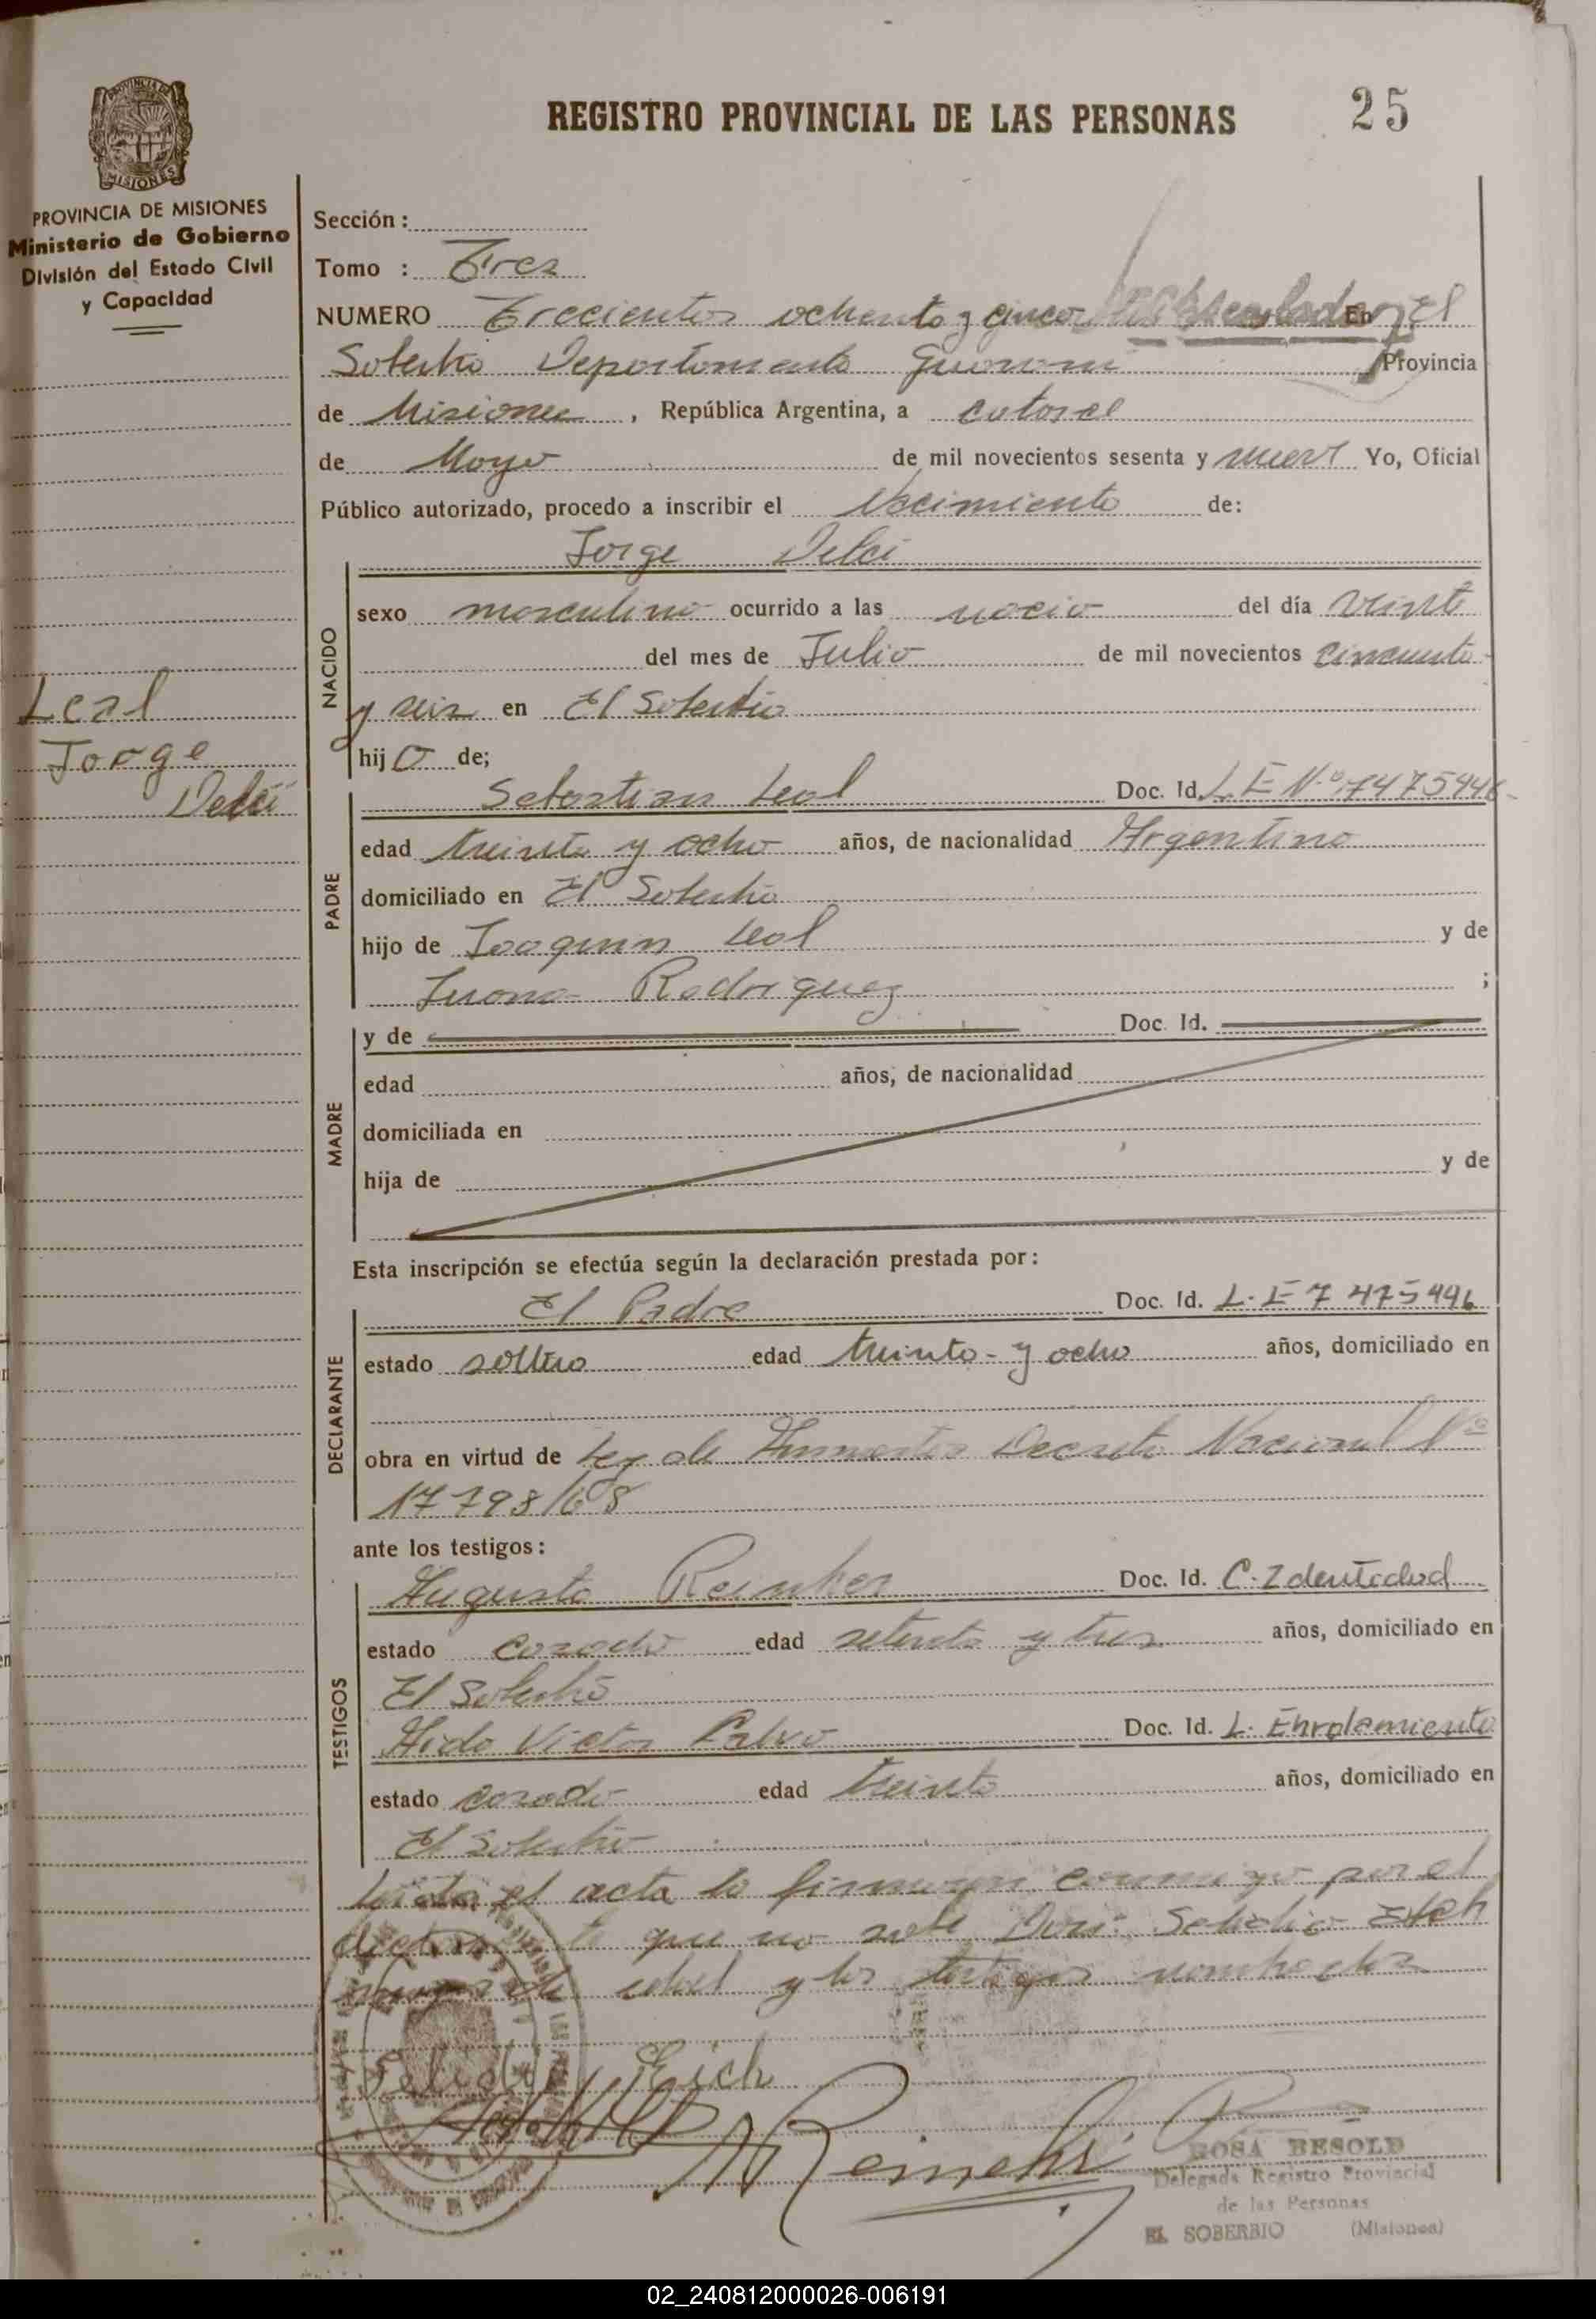 REGISTRO PROVINCIAL DE LAS PERSONAS 25
PROVINCIA DE MISIONES
MISIONES
PROVINCIA DE MISIONES
Ministerio de Gobierno
División del Estado Civil
y Capacidad
Sección :
Tomo : Tres
NUMERO Trecientos ochenta y cinco En El
Soberbio Departamento Guarani Provincia
de Misiones , República Argentina, a catorce
de Mayo de mil novecientos sesenta y nueve Yo, Oficial
Público autorizado, procedo a inscribir el Nacimiento de:
Jorge Delci
NACIDO
sexo masculino ocurrido a las nacio del día veinte
del mes de Julio de mil novecientos cincuenta
y seis en El Soberbio
hij o de;
Leal
Jorge
Delci
PADRE
Sebastian Leal Doc. Id. L E Nº 7475446
edad treinta y ocho años, de nacionalidad Argentino
domiciliado en El Soberbio
hijo de Joaquin Leal y de
Juana Rodriguez ;
MADRE
y de Doc. Id.
edad años, de nacionalidad
domiciliada en
hija de y de
Esta inscripción se efectúa según la declaración prestada por :
DECLARANTE
El Padre Doc. Id. L. E 7 475446
estado soltero edad treinta y ocho años, domiciliado en
obra en virtud de Ley de Decreto Nacional Nº
17798/68
ante los testigos :
TESTIGOS
Augusto Doc. Id. C. Identidad
estado casado edad setenta y tres años, domiciliado en
El Soberbio
Victor Doc. Id. L. Enrolamiento
estado casado edad treinta años, domiciliado en
El Soberbio
el acta la firman conmigo por el
que no sabe
edad y los testigos nombrados
ROSA BESOLD
Delegada Registro Provincial
de las Personas
EL SOBERBIO (Misiones)
02_240812000026-006191